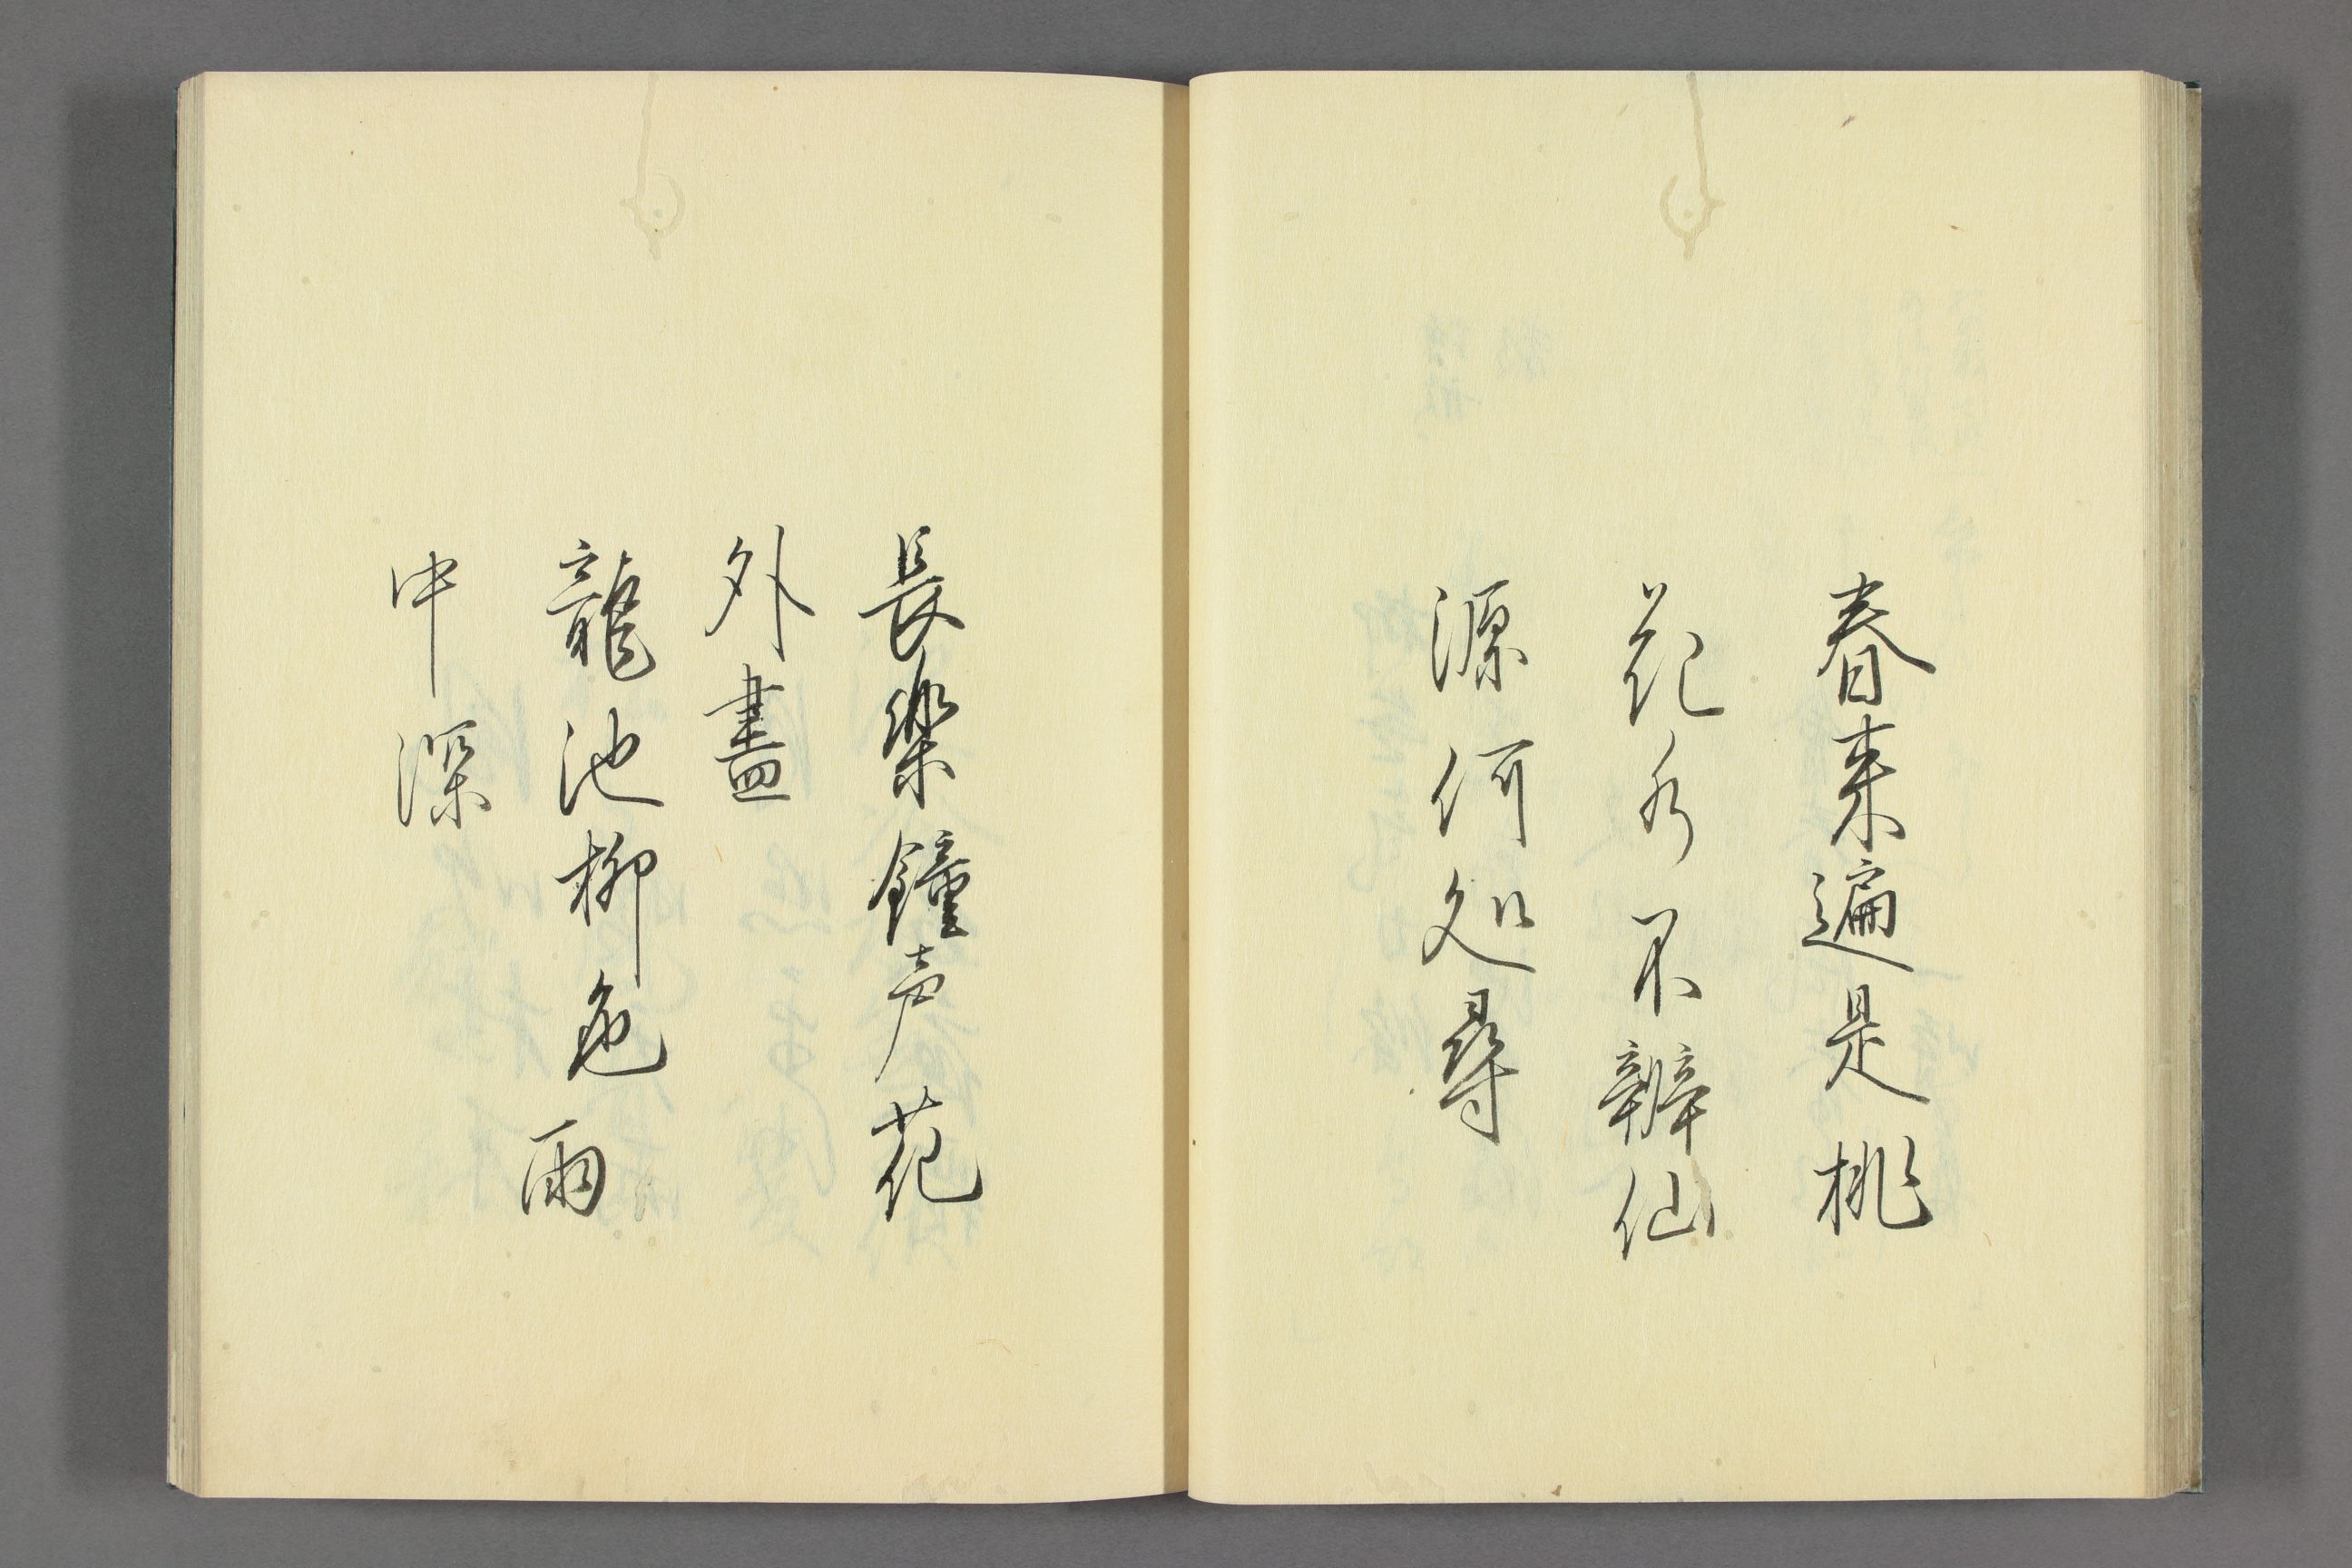 春来遍是桃
花水不辨仙
源何処尋
長樂鐘声花
外盡
龍池柳色雨
中深